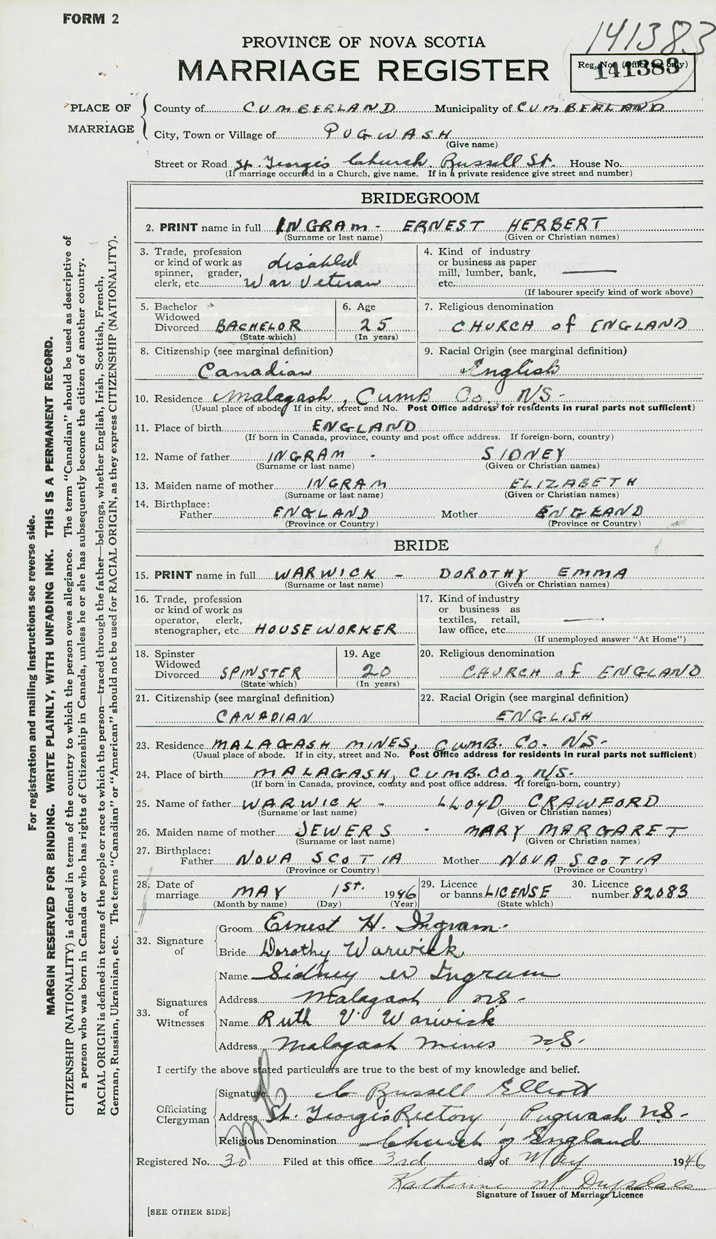 FORM 2
141383
PROVINCE OF NOVA SCOTIA
MARRIAGE REGISTER
Reg. No. (Office use only)
141383
PLACE OF MARRIAGE
County of CUMBERLAND Municipality of CUMBERLAND
City, Town or Village of PUGWASH
(Give name)
Street or Road St. George's Church Russell St. House No.
(If marriage occurred in a Church, give name. If in a private residence give street and number)
BRIDEGROOM
2. PRINT name in full INGRAM - ERNEST HERBERT
(Surname or last name) (Given or Christian names)
3. Trade, profession or kind of work as spinner, grader, clerk, etc. disabled War Veteran
4. Kind of industry or business as paper mill, lumber, bank, etc. —
(If labourer specify kind of work above)
5. Bachelor Widowed Divorced BACHELOR (State which)
6. Age 25 (In years)
7. Religious denomination CHURCH of ENGLAND
8. Citizenship (see marginal definition) Canadian
9. Racial Origin (see marginal definition) English
10. Residence Malagash, Cumb Co, N/S-
(Usual place of abode. If in city, street and No. Post Office address for residents in rural parts not sufficient)
11. Place of birth ENGLAND
(If born in Canada, province, county and post office address. If foreign-born, country)
12. Name of father INGRAM - SIDNEY
(Surname or last name) (Given or Christian names)
13. Maiden name of mother INGRAM ELIZABETH
(Surname or last name) (Given or Christian names)
14. Birthplace: Father ENGLAND Mother ENGLAND
(Province or Country) (Province or Country)
BRIDE
15. PRINT name in full WARWICK - DOROTHY EMMA
(Surname or last name) (Given or Christian names)
16. Trade, profession or kind of work as operator, clerk, stenographer, etc HOUSEWORKER
17. Kind of industry or business as textiles, retail, law office, etc. —
(If unemployed answer "At Home")
18. Spinster Widowed Divorced SPINSTER (State which)
19. Age 20 (In years)
20. Religious denomination CHURCH of ENGLAND
21. Citizenship (see marginal definition) CANADIAN
22. Racial Origin (see marginal definition) ENGLISH
23. Residence MALAGASH MINES, CUMB. CO. N/S-
(Usual place of abode. If in city, street and No. Post Office address for residents in rural parts not sufficient)
24. Place of birth MALAGASH, CUMB. CO, N/S-
(If born in Canada, province, county and post office address. If foreign-born, country)
25. Name of father WARWICK - LLOYD CRAWFORD
(Surname or last name) (Given or Christian names)
26. Maiden name of mother JEWERS - MARY MARGARET
(Surname or last name) (Given or Christian names)
27. Birthplace: Father NOVA SCOTIA Mother NOVA SCOTIA
(Province or Country) (Province or Country)
28. Date of marriage MAY 1ST. 1946
(Month by name) (Day) (Year)
29. Licence or banns LICENSE (State which)
30. Licence number 82083
32. Signature of
Groom Ernest H. Ingram.
Bride Dorothy Warwick
33. Signatures of Witnesses
Name Sidney W Ingram
Address Malagash NS-
Name Ruth V. Warwick
Address Malagash Mines N.S.
I certify the above stated particulars are true to the best of my knowledge and belief.
Officiating Clergyman
Signature C Russell Elliott
Address St. George's Rectory, Pugwash N.S-
Religious Denomination Church of England
Registered No. 30 Filed at this office 3rd day of May 1946
Katherine
Signature of Issuer of Marriage Licence
[SEE OTHER SIDE]
For registration and mailing Instructions see reverse side.
MARGIN RESERVED FOR BINDING. WRITE PLAINLY, WITH UNFADING INK. THIS IS A PERMANENT RECORD.
CITIZENSHIP (NATIONALITY) is defined in terms of the country to which the person owes allegiance. The term "Canadian" should be used as descriptive of
a person who was born in Canada or who has rights of Citizenship in Canada, unless he or she has subsequently become the citizen of another country.
RACIAL ORIGIN is defined in terms of the people or race to which the person—traced through the father—belongs, whether English, Irish, Scottish, French,
German, Russian, Ukrainian, etc. The terms "Canadian" or "American" should not be used for RACIAL ORIGIN, as they express CITIZENSHIP (NATIONALITY).